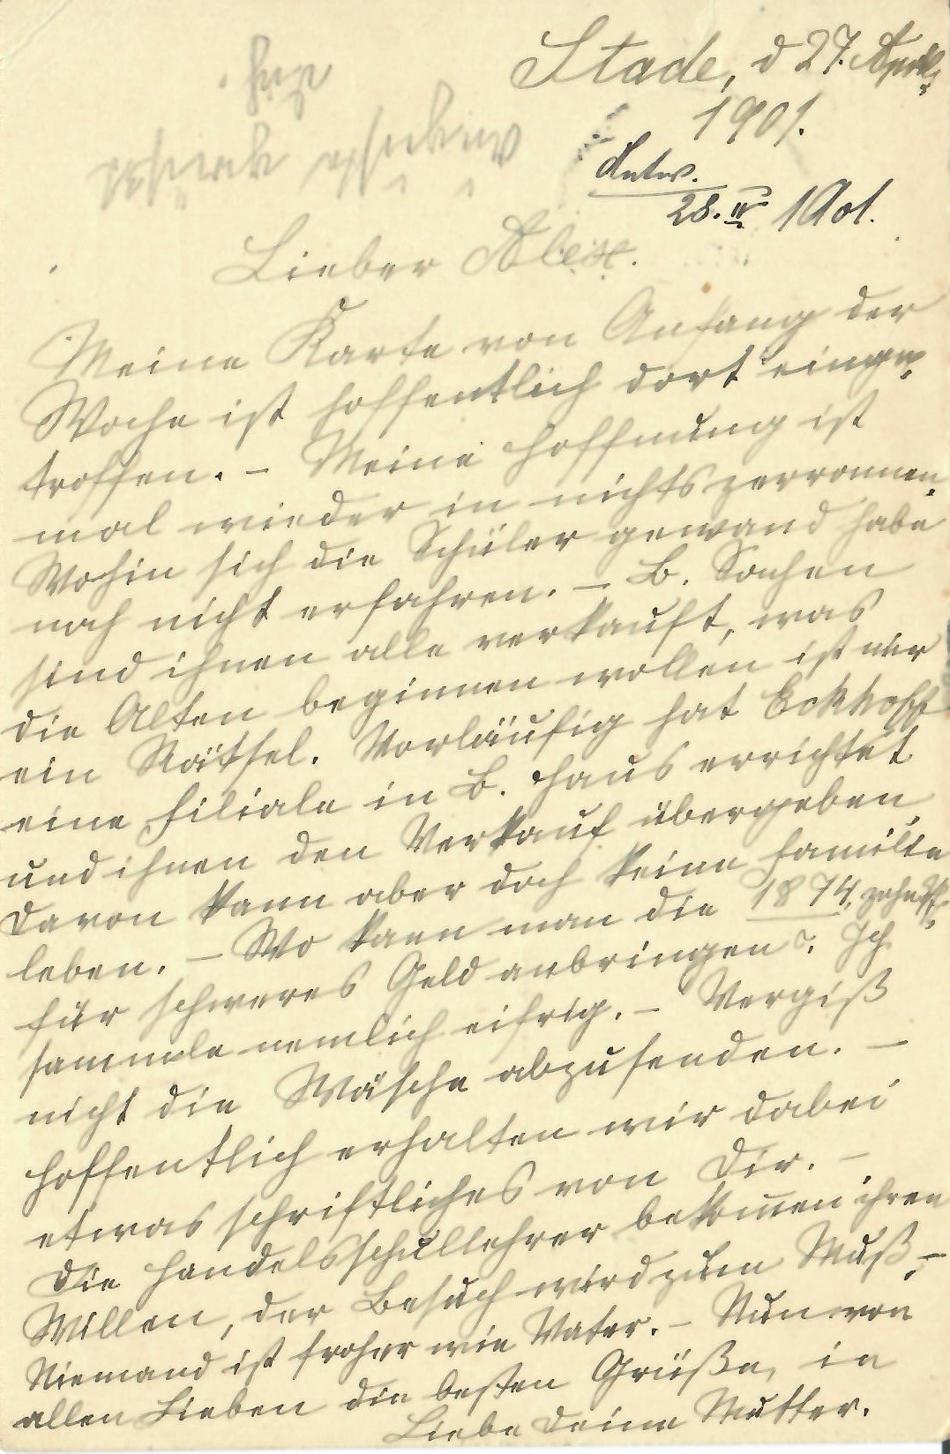 Stade, d 27. April,
1901.
Antw.
28. IV 1901.
Lieber Alex.
Meine Karte von Anfang der
Woche ist hoffentlich dort einge-
troffen. – Meine Hoffnung ist
mal wieder in nichts zerronnen.
Wohin sich die Schüler gewand habe
noch nicht erfahren. – B. Sachen
sind ihnen alle verkauft, was
die Alten beginnen wollen ist mir
ein Rätsel. Vorläufig hat Eckhoff
eine Filiale in B. Haus errichtet
und ihnen den Verkauf übergeben,
davon kann aber doch keine Familie
leben. – Wo kann man die 1874.
für schweres Geld anbringen? Ich
sammele nemlich eifrig. – Vergiß
nicht die Wäsche abzusenden. –
Hoffentlich erhalten wir dabei
etwas schriftliches von Dir. –
Die Handelsschullehrer bekommen ihren
Willen, der Besuch wird zum Muß, –
Niemand ist froher wie Vater. – Nun von
allen Lieben die besten Grüße, in
Liebe deine Mutter.